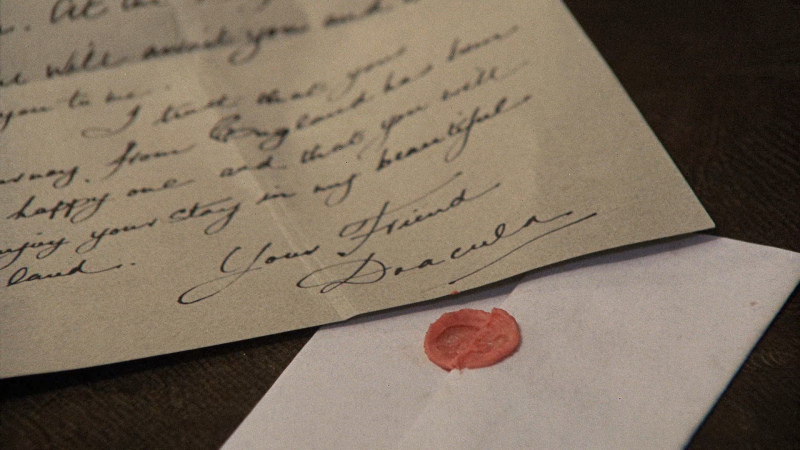 At the
will await you and
you to me.
I trust that your
from England has been
happy one and that you will
enjoy your stay in my beautiful
land.
Your Friend
Dracula